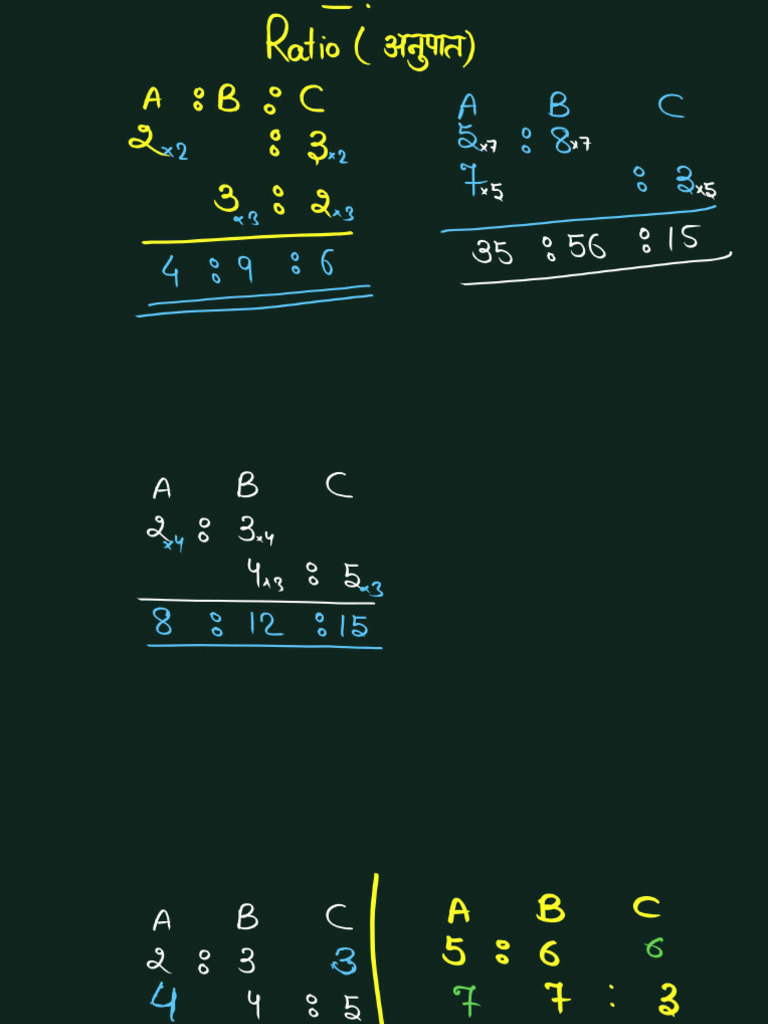 Ratio (अनुपात)
A : B : C
2×2 : 3×2
3×3 : 2×3
4 : 9 : 6
A B C
5×7 : 8×7
7×5 : 3×5
35 : 56 : 15
A B C
2×4 : 3×4
4×3 : 5×3
8 : 12 : 15
A B C
2 : 3 3
4 4 : 5
A B C
5 : 6 6
7 7 : 3